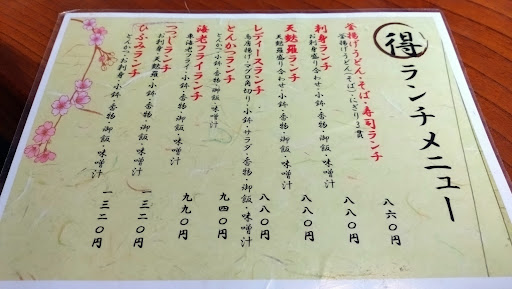 得ランチメニュー
釜揚げうどん・そば・寿司ランチ
釜揚げうどん(そば)・にぎり3貫
八六〇円
刺身ランチ
お刺身盛り合わせ・小鉢・香物・御飯・味噌汁
八八〇円
天麩羅ランチ
天麩羅盛り合わせ・小鉢・香物・御飯・味噌汁
八八〇円
レディースランチ
鳥唐揚げ・マグロ角切り・小鉢・サラダ・香物・御飯・味噌汁
八八〇円
とんかつランチ
とんかつ・小鉢・香物・御飯・味噌汁
九四〇円
海老フライランチ
車海老フライ・小鉢・香物・御飯・味噌汁
九九〇円
つつじランチ
お刺身・天麩羅・小鉢・香物・御飯・味噌汁
一三二〇円
ひふみランチ
とんかつ・お刺身・小鉢・香物・御飯・味噌汁
一三二〇円